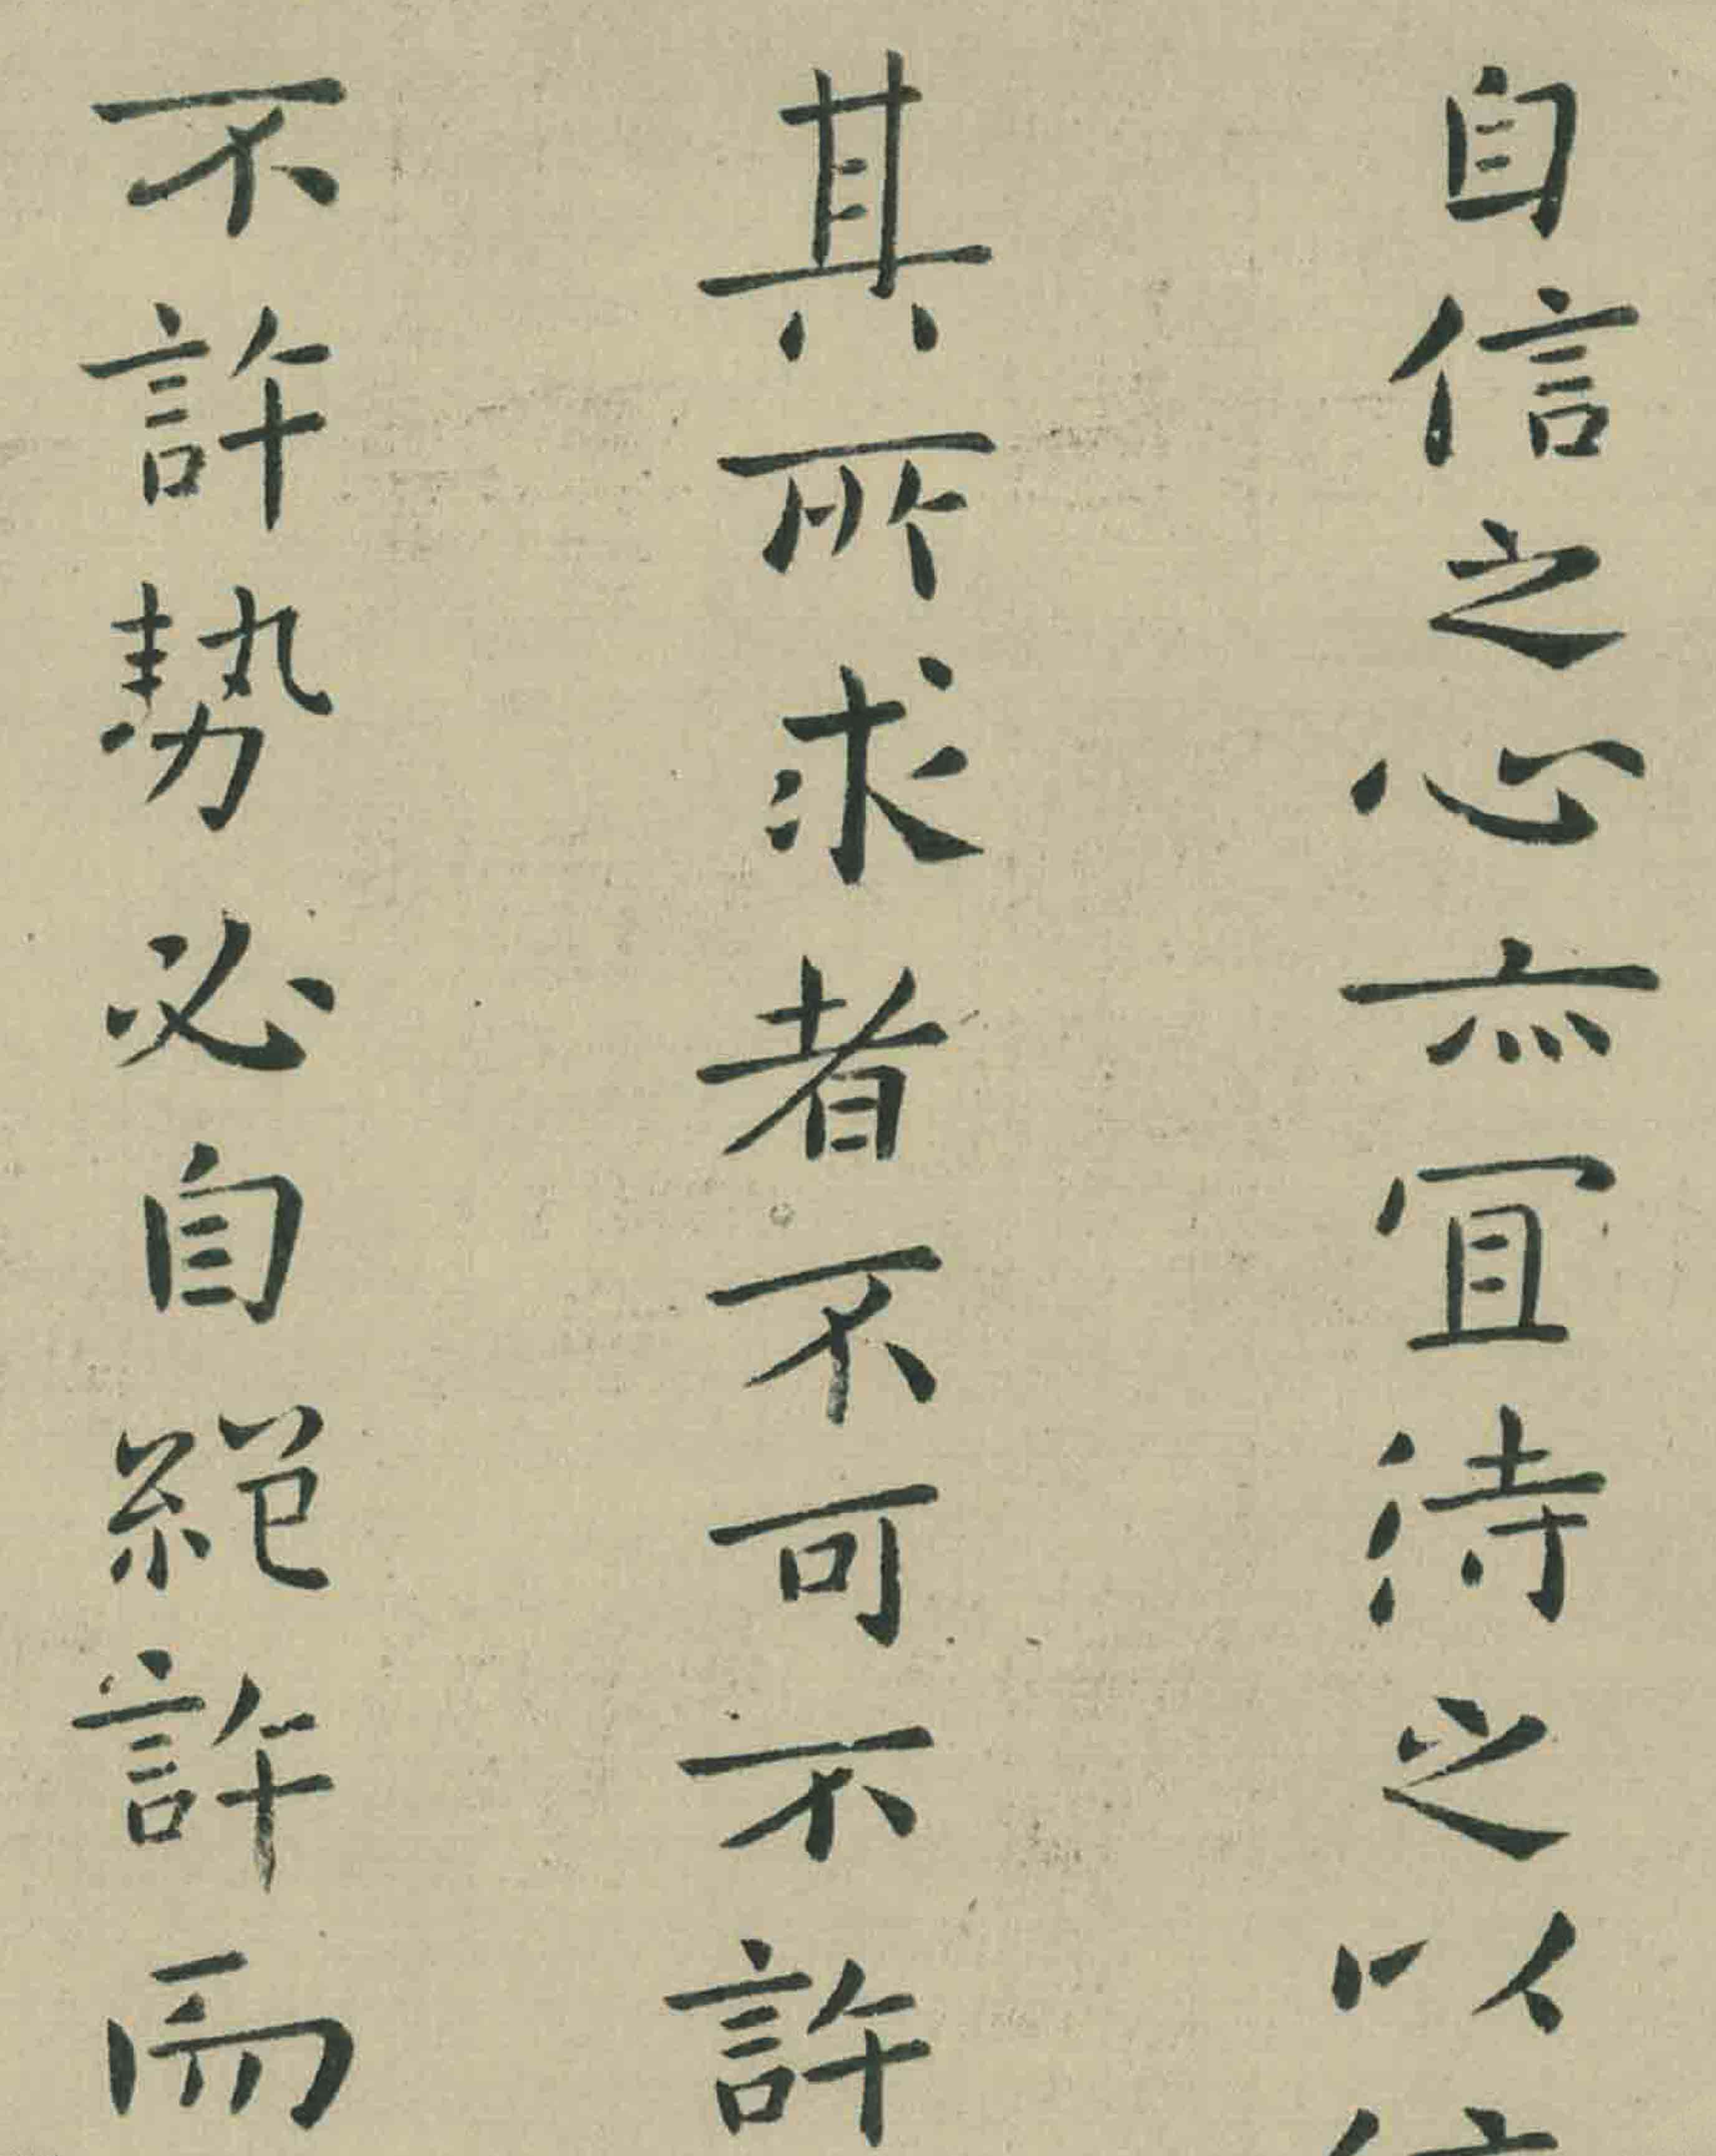 自信之心亦宜待之以信
其所求者不可不許
不許勢必自絕許而